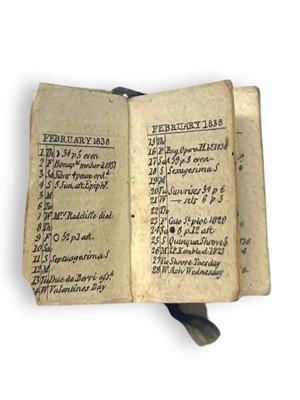 FEBRUARY 1838
1 Th p 5 even
2 F Bonapte
3 Sa
4 S 5 Sun. aft Epiph.
5 M
6 Tu
7 W Mrs Radcliffe died
8 Th
9 F p 2 aft.
10 Sa
11 S Septuagesima S
12 M
13 Tu Duc de Berri
14 W Valentines Day
FEBRUARY 1838
15 Th
16 F Eng. Opera H
17 Sa p 3 even.
18 S Sexagesima S
19 M
20 Tu Sun rises p 6
21 W — sets 6 p 5
22 Th
23 F Cato St plot 1820
24 Sa ● 8 p 12 aft
25 S Quinqua. Shrove S
26 M Kemble d 1823
27 Tu Shrove Tuesday
28 W Ash Wednesday